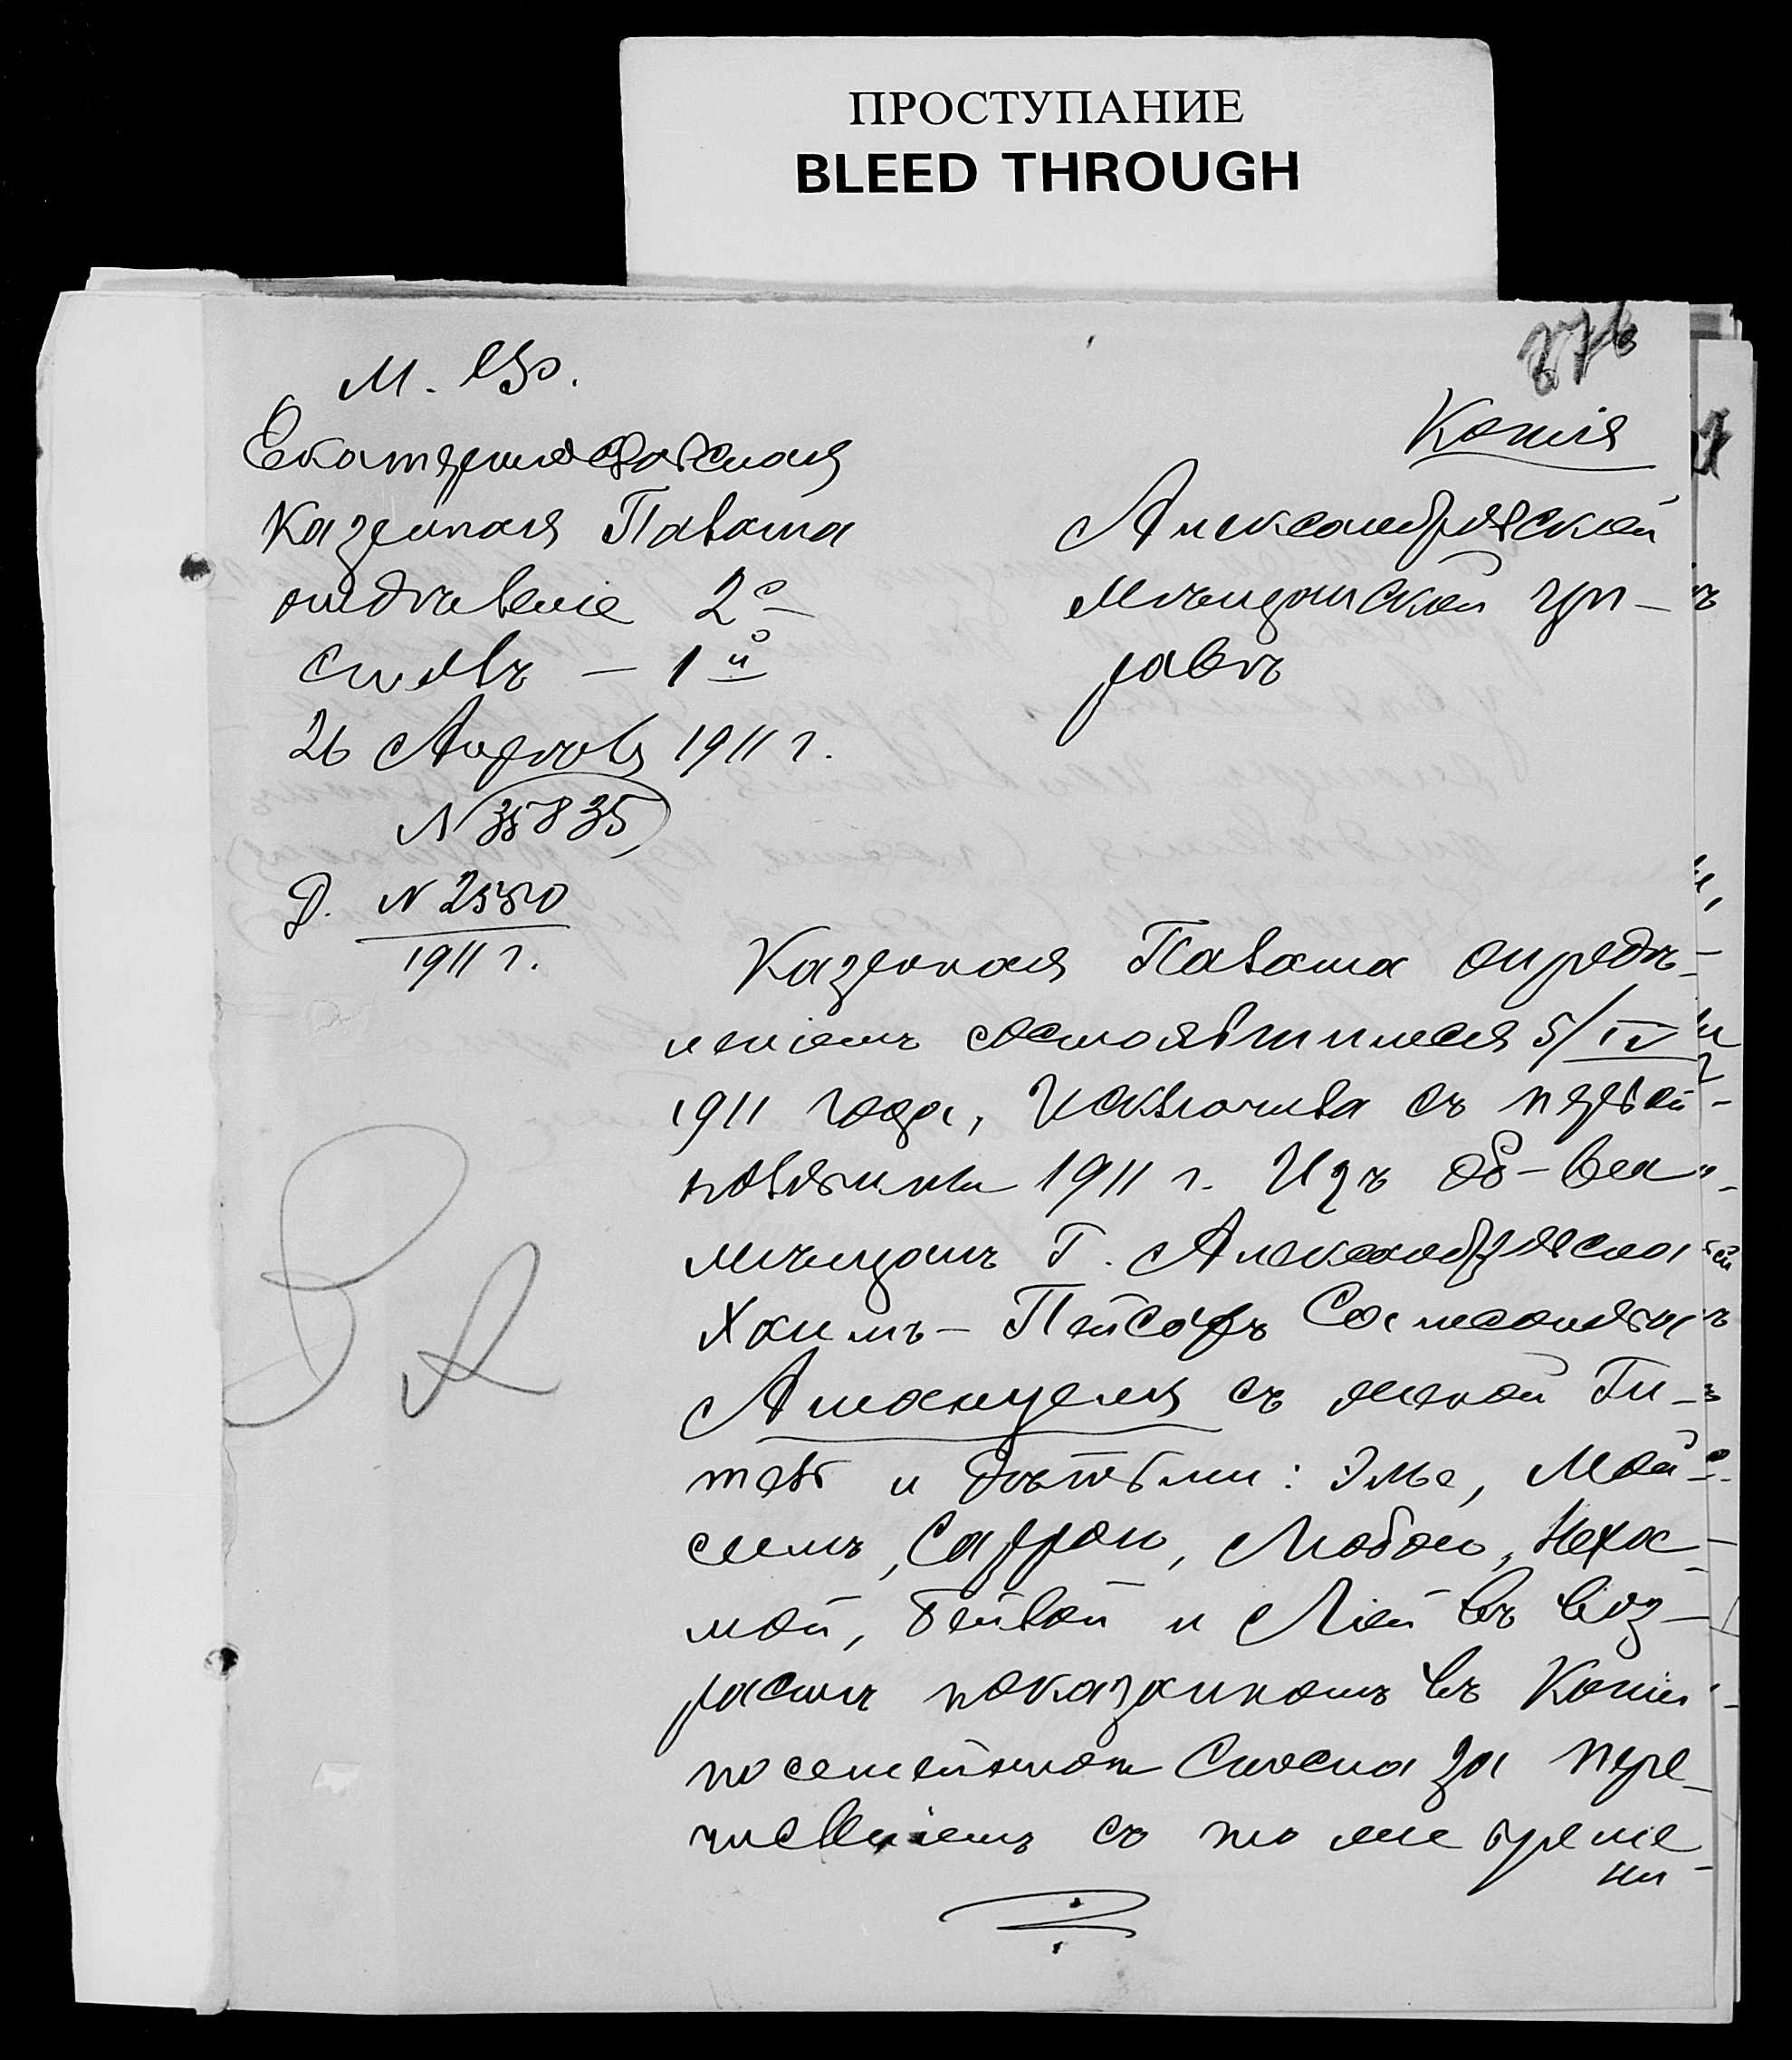 ПРОСТУПАНИЕ
BLEED THROUGH
376
М. Ф.
Копія
Екатеринославская
Казенная Палата
отдѣленіе 2е
столъ – 1й
26 Апрѣля 1911 г.
N 35835
Д. N 2550
1911 г.
Александровской
мѣщанской уп-
равѣ
Казенная Палата опредѣ-
леніемъ состоявшимся 5/IV
1911 года, исключила съ первой
половины 1911 г. изъ об-ва
мѣщанъ г. Александровска
Хаимъ-Пейсахъ
Амануеля съ женой Ги-
тей и дѣтьми: Элье, Мой-
сеемъ, Саррою, Любою, Неха-
мой, Бейлой и Ліей въ воз-
растѣ показанномъ въ копіи
посемейнаго списка за пере-
численіемъ съ то же време
ни